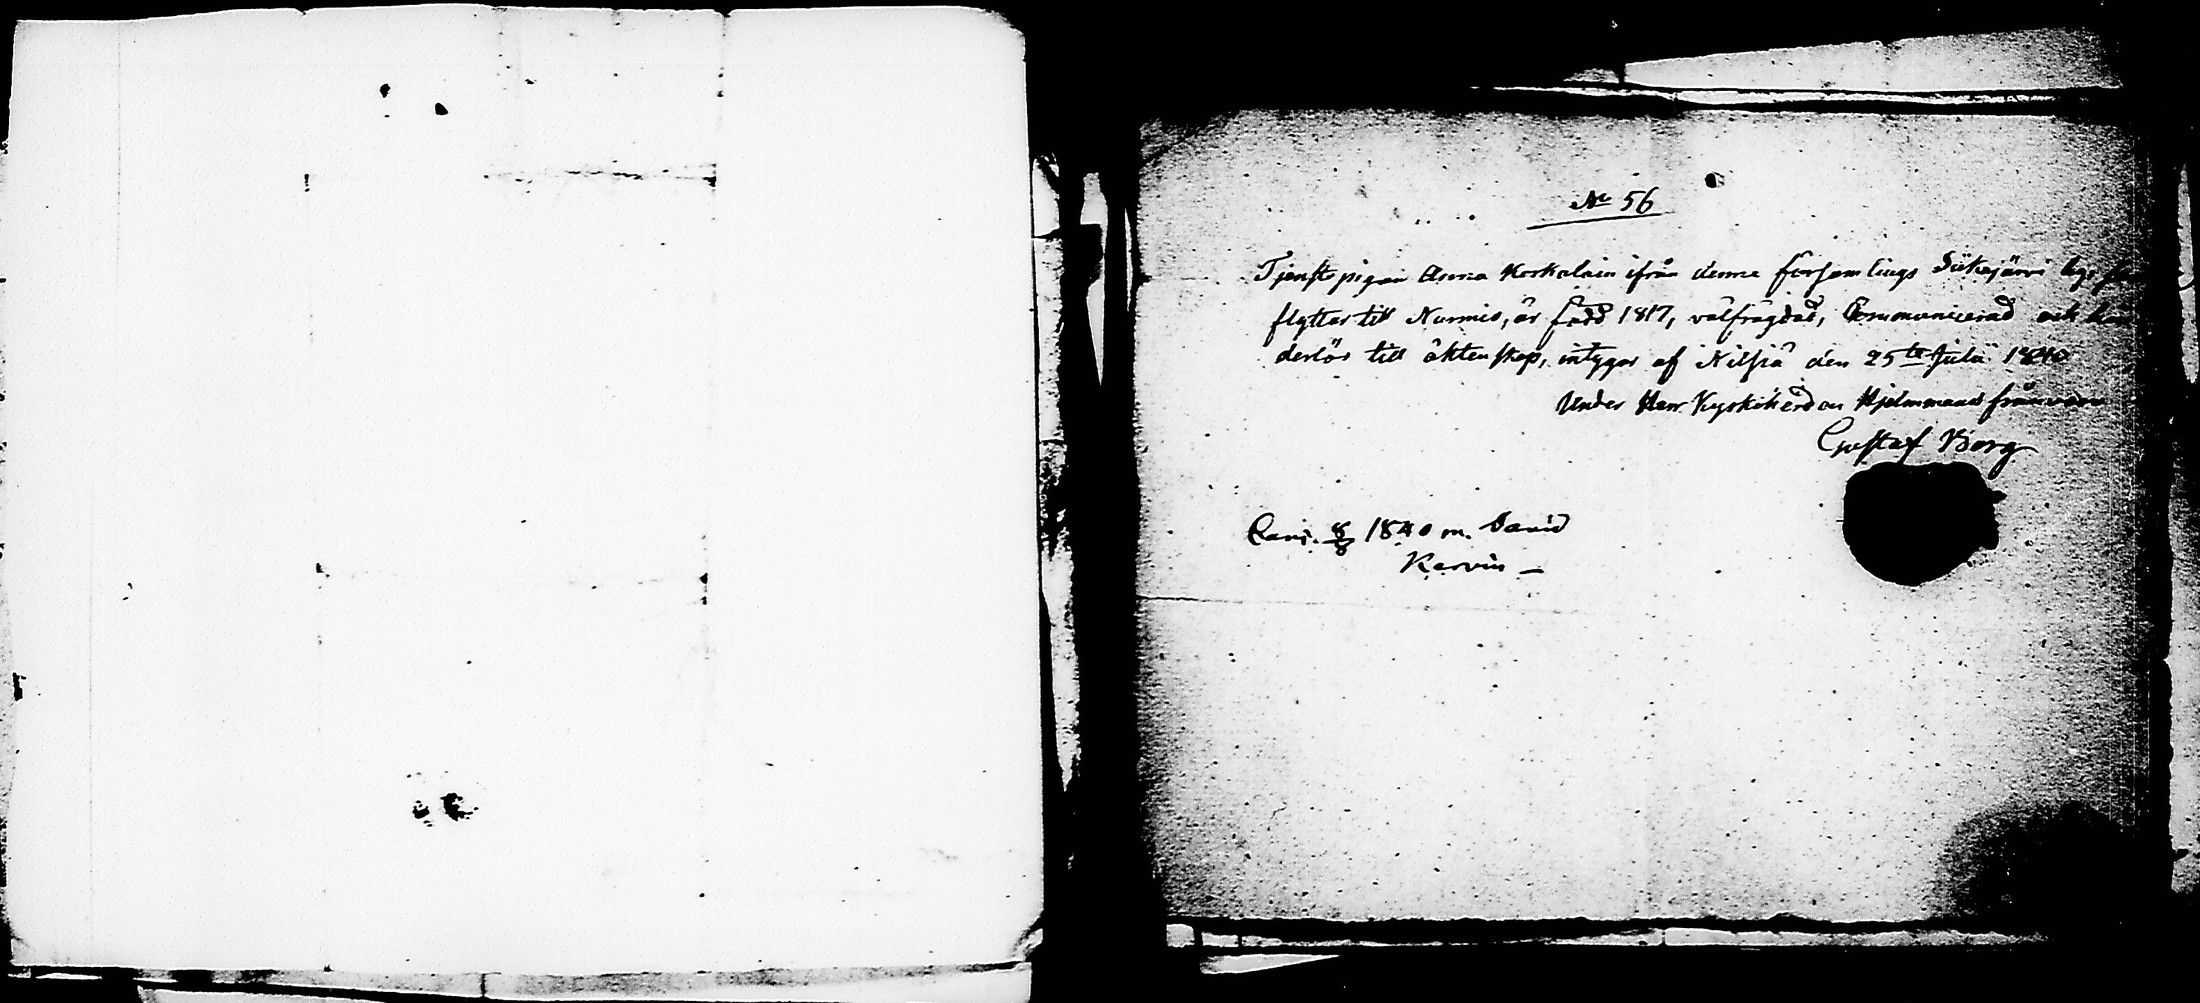 No 56
Tjenstepigan Anna Korkalain ifrån denne församlings Siikajärvi
flyttar till Nurmis, är född 1817, välfrägdad, Communicerad och
derlös till äktenskap, intygar af Nilsiä den 25te Julii 1840
Under Herr Kyrkoherden Hjelmmans frånvaro
Gustaf Borg
8/8 1840 m. David
Karvin —